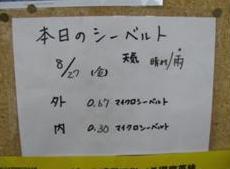 本日のシーベルト
8/27 (金) 天気 晴れ/雨
外 0.67 マイクロシーベルト
内 0.30 マイクロシーベルト